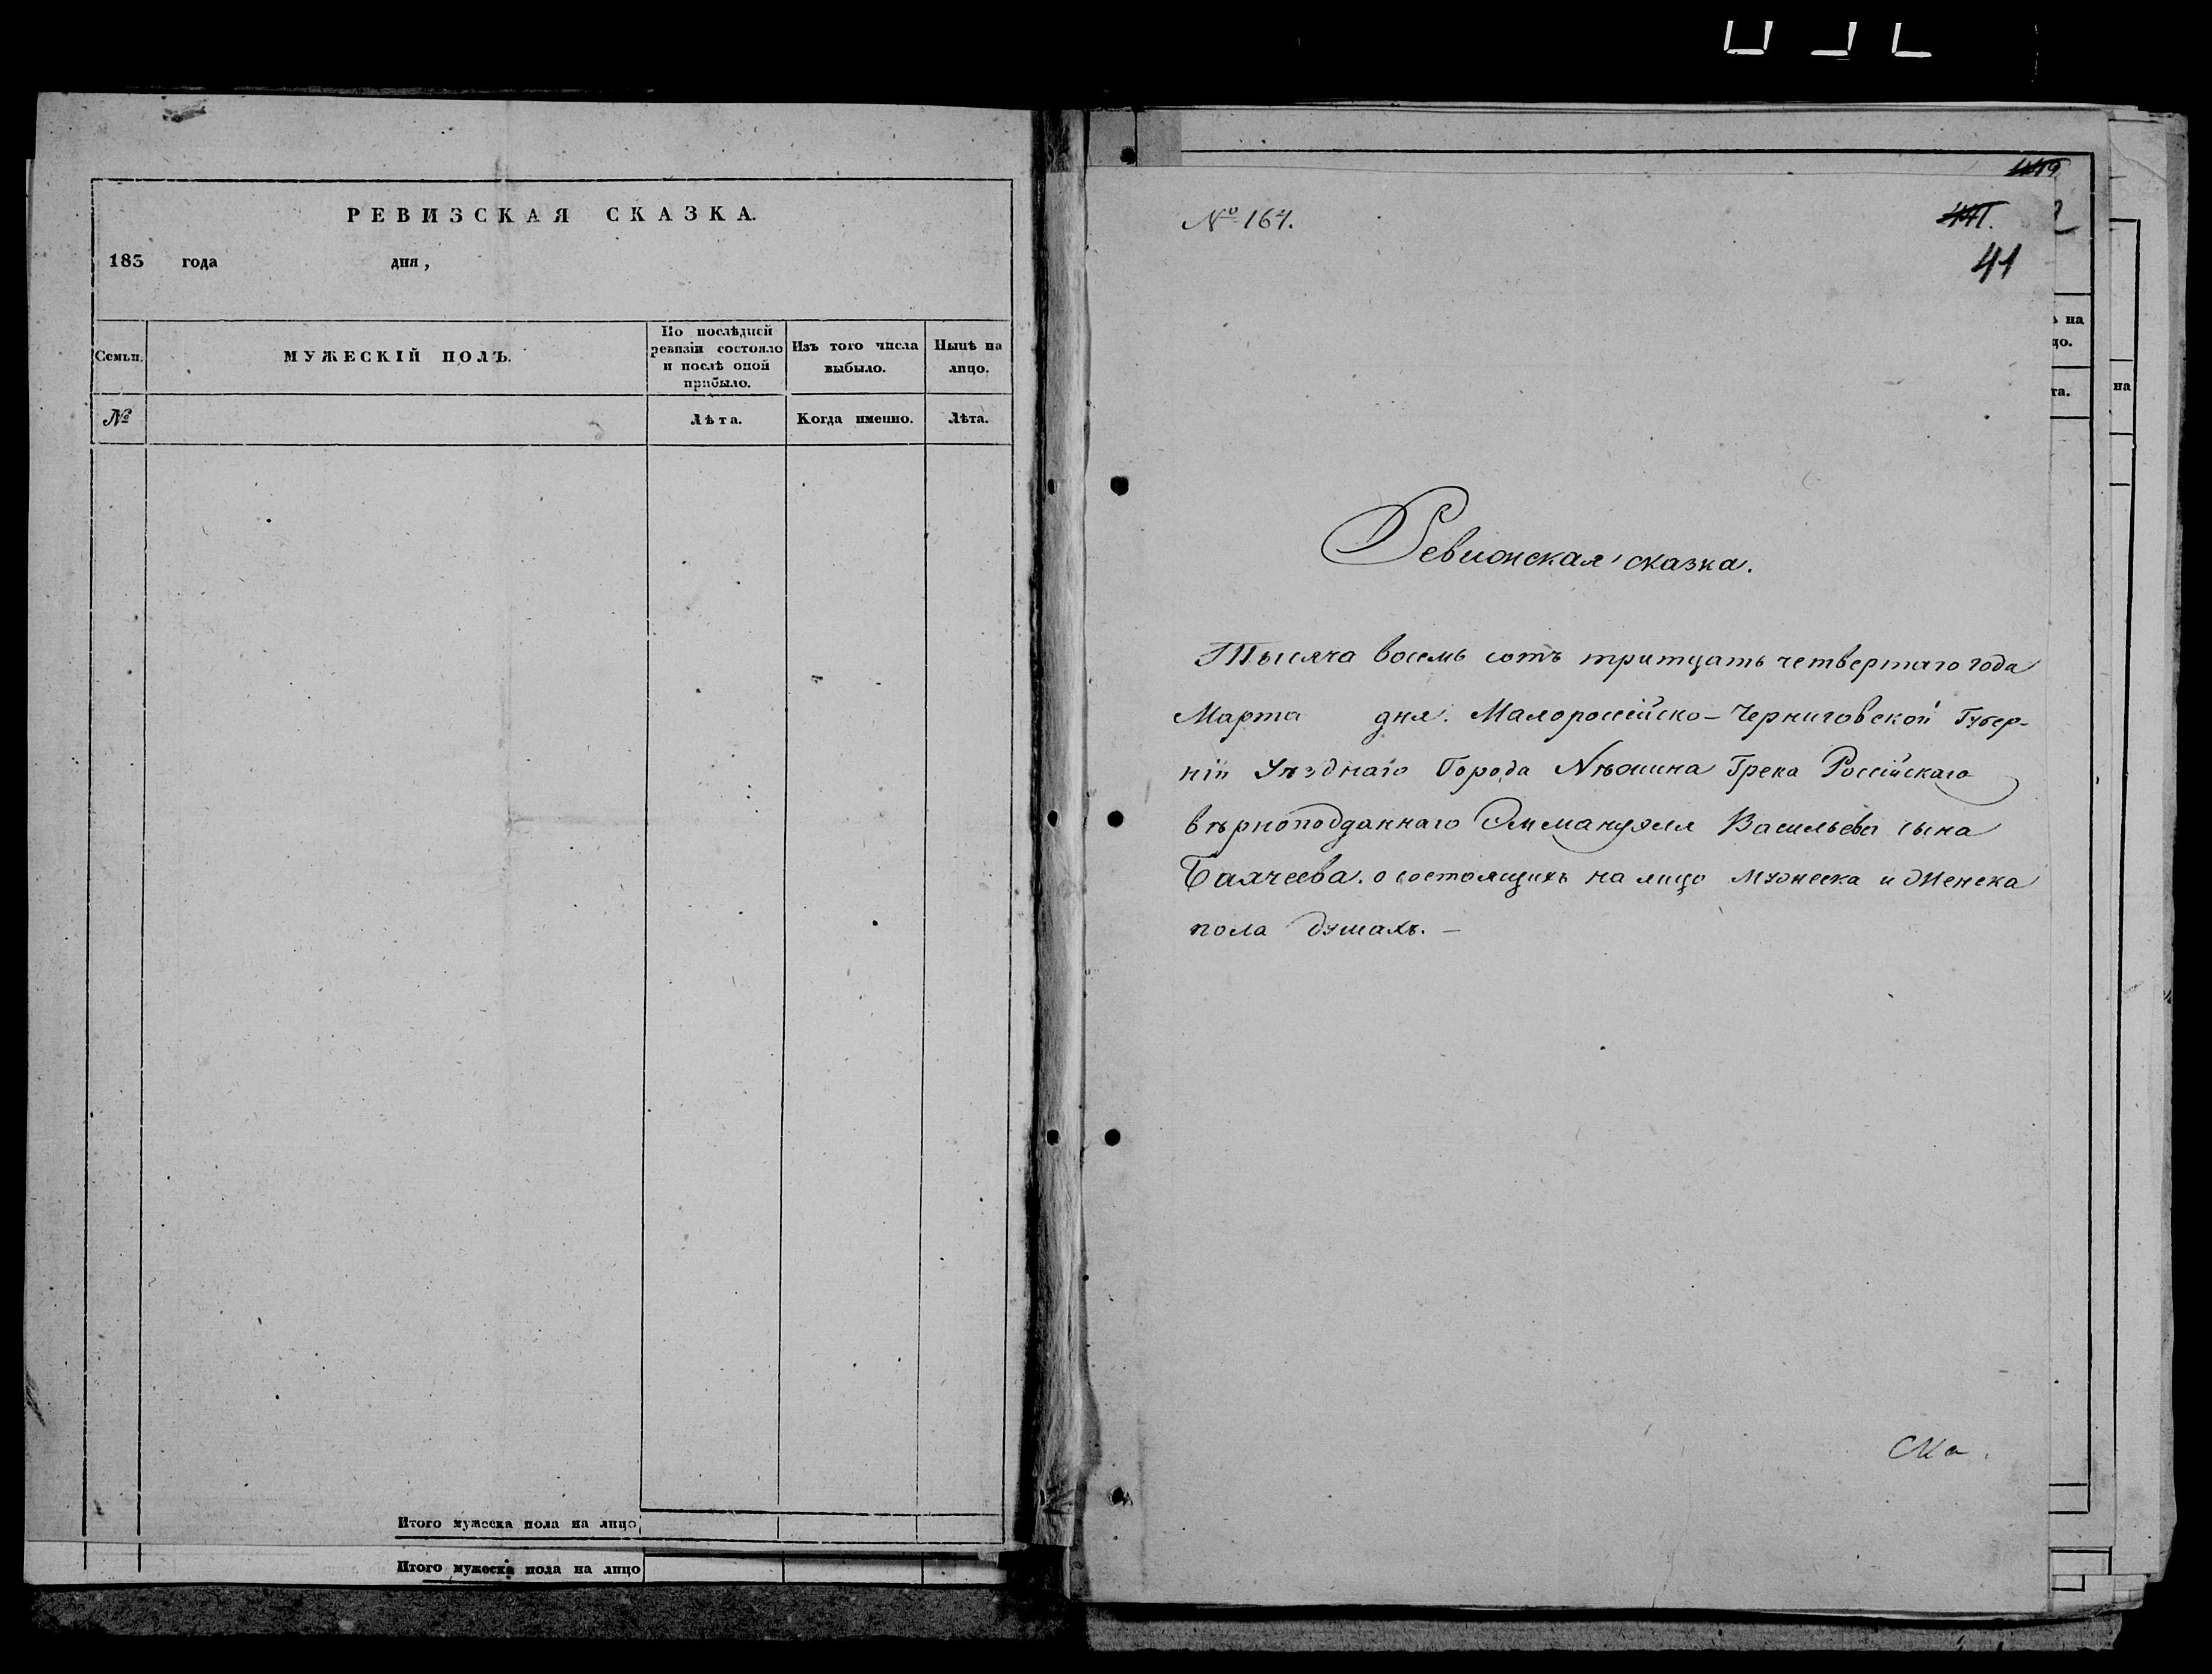 РЕВИЗСКАЯ СКАЗКА.
183 года дня,
Семьи.
МУЖЕСКІЙ ПОЛЪ.
По послѣдней ревизіи состояло и послѣ оной прибыло.
Изъ того числа выбыло.
Нынѣ на лицо.
№
Лѣта.
Когда именно.
Лѣта.
Итого мужеска пола на лицо
Итого мужеска пола на лицо
№ 164.
41
Ревизская сказка.
Тысяча восемь сотъ тритцать четвертаго года
Марта дня. Малороссійско-Черниговской Губер-
ніи Уѣзднаго Города Нѣжина Грека Россійскаго
вѣрноподданнаго Эммануэля Васильева сына
Балчеева. о состоящихъ на лицо Мужеска и Женска
пола душахъ. —
ь на
цо.
та.
на